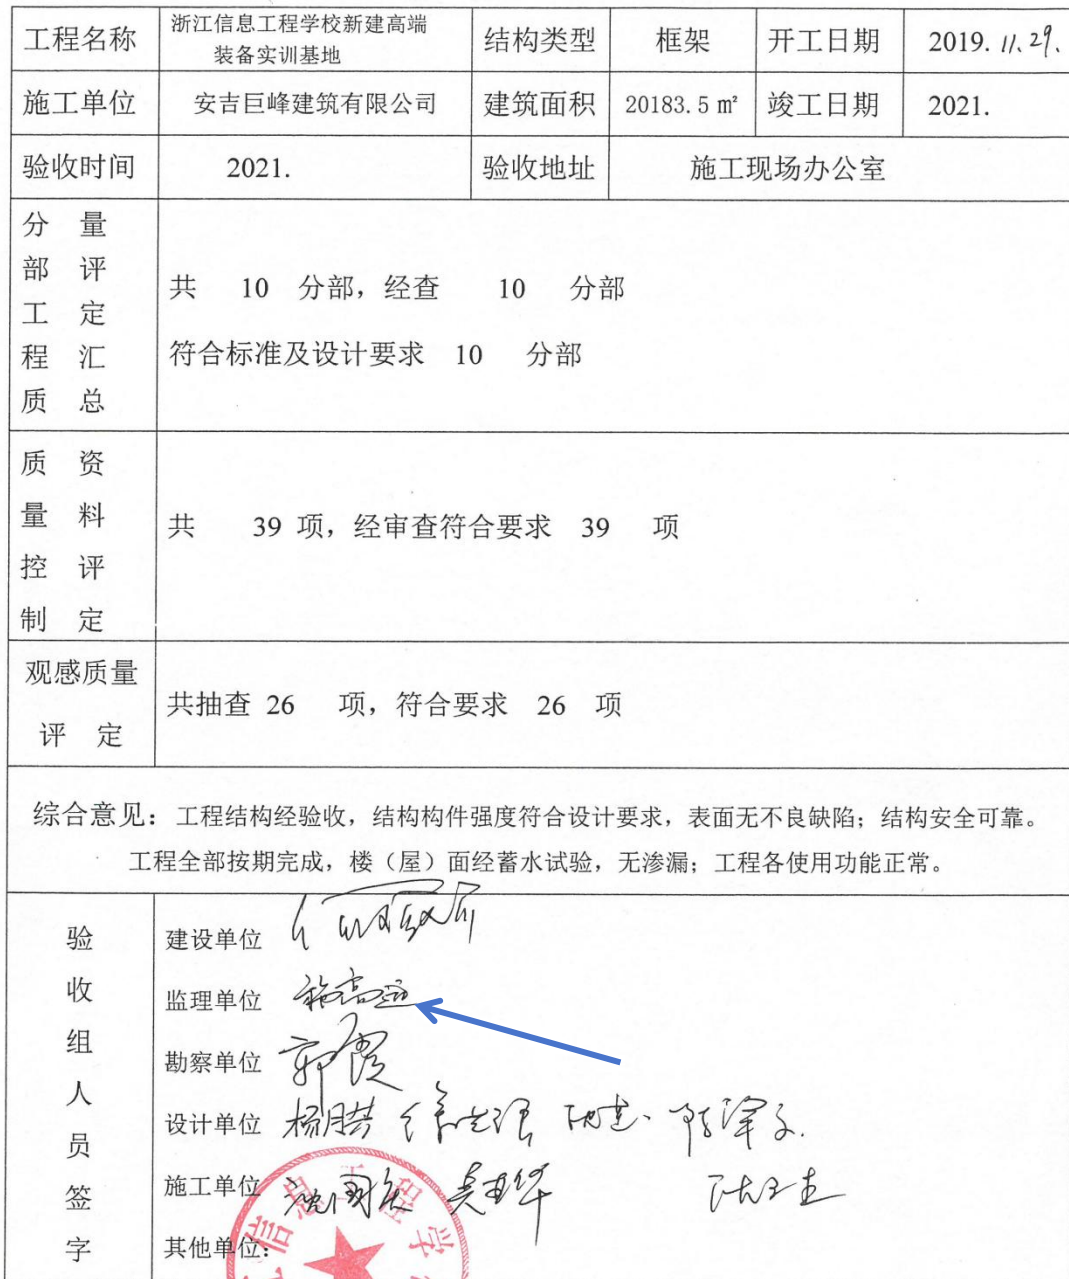 工程名称 浙江信息工程学校新建高端装备实训基地 结构类型 框架 开工日期 2019. 11. 29.
施工单位 安吉巨峰建筑有限公司 建筑面积 20183.5 ㎡ 竣工日期 2021.
验收时间 2021. 验收地址 施工现场办公室
分部工程质量评定汇总
共 10 分部，经查 10 分部
符合标准及设计要求 10 分部
质量控制资料评定
共 39 项，经审查符合要求 39 项
观感质量
评 定
共抽查 26 项，符合要求 26 项
综合意见：工程结构经验收，结构构件强度符合设计要求，表面无不良缺陷；结构安全可靠。
工程全部按期完成，楼（屋）面经蓄水试验，无渗漏；工程各使用功能正常。
验收组人员签字
建设单位
监理单位 施高运
勘察单位 郭霞
设计单位
施工单位
其他单位：
信息工程学